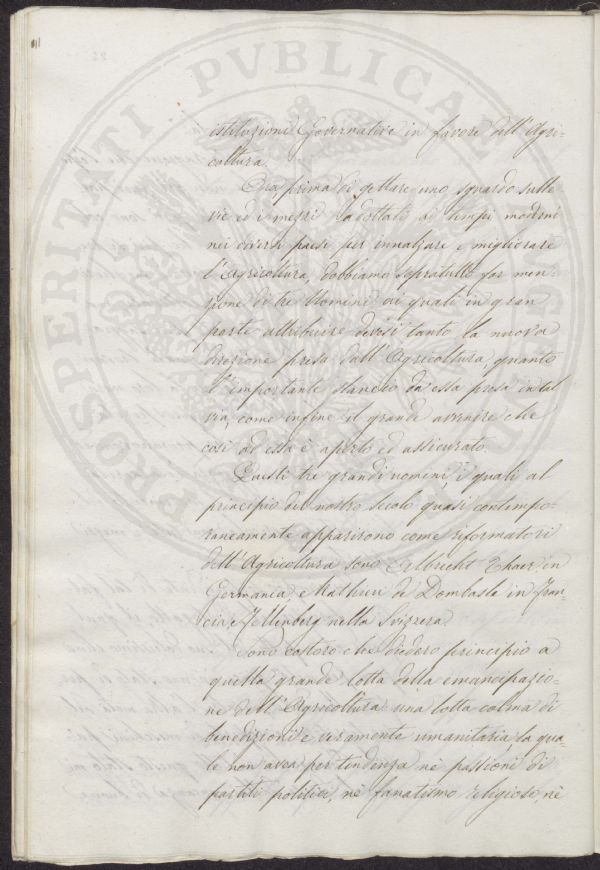 istituzioni Governative in favore dell'Agri-
coltura.
Ora prima di gettare uno sguardo sulle
vie ed i mezzi adottati ai tempi moderni
nei diversi paesi per innalzare e migliorare
l'Agricoltura, dobbiamo sopratutto far men-
zione di tre Uomini ai quali in gran
parte attribuire devesi tanto la nuova
direzione presa dall'Agricoltura, quanto
l'importante slancio da essa preso in tal
via, come infine il grande avvenire che
così ad essa è aperto ed assicurato.
Questi tre grandi uomini i quali al
principio del nostro secolo quasi contempo-
raneamente apparirono come riformatori
dell'Agricoltura sono Albrecht Thaer in
Germania e Mathieu de Dombasle in Fran-
cia e Fellenberg nella Svizzera.
Sono costoro che diedero principio a
quella grande lotta della emancipazio-
ne dell'Agricoltura una lotta calma di
benedizioni e veramente umanitaria, la qua-
le non avea per tendenza nè passioni di
partiti politici, nè fanatismo religioso, nè
PROSPERITATI PVBLICAE